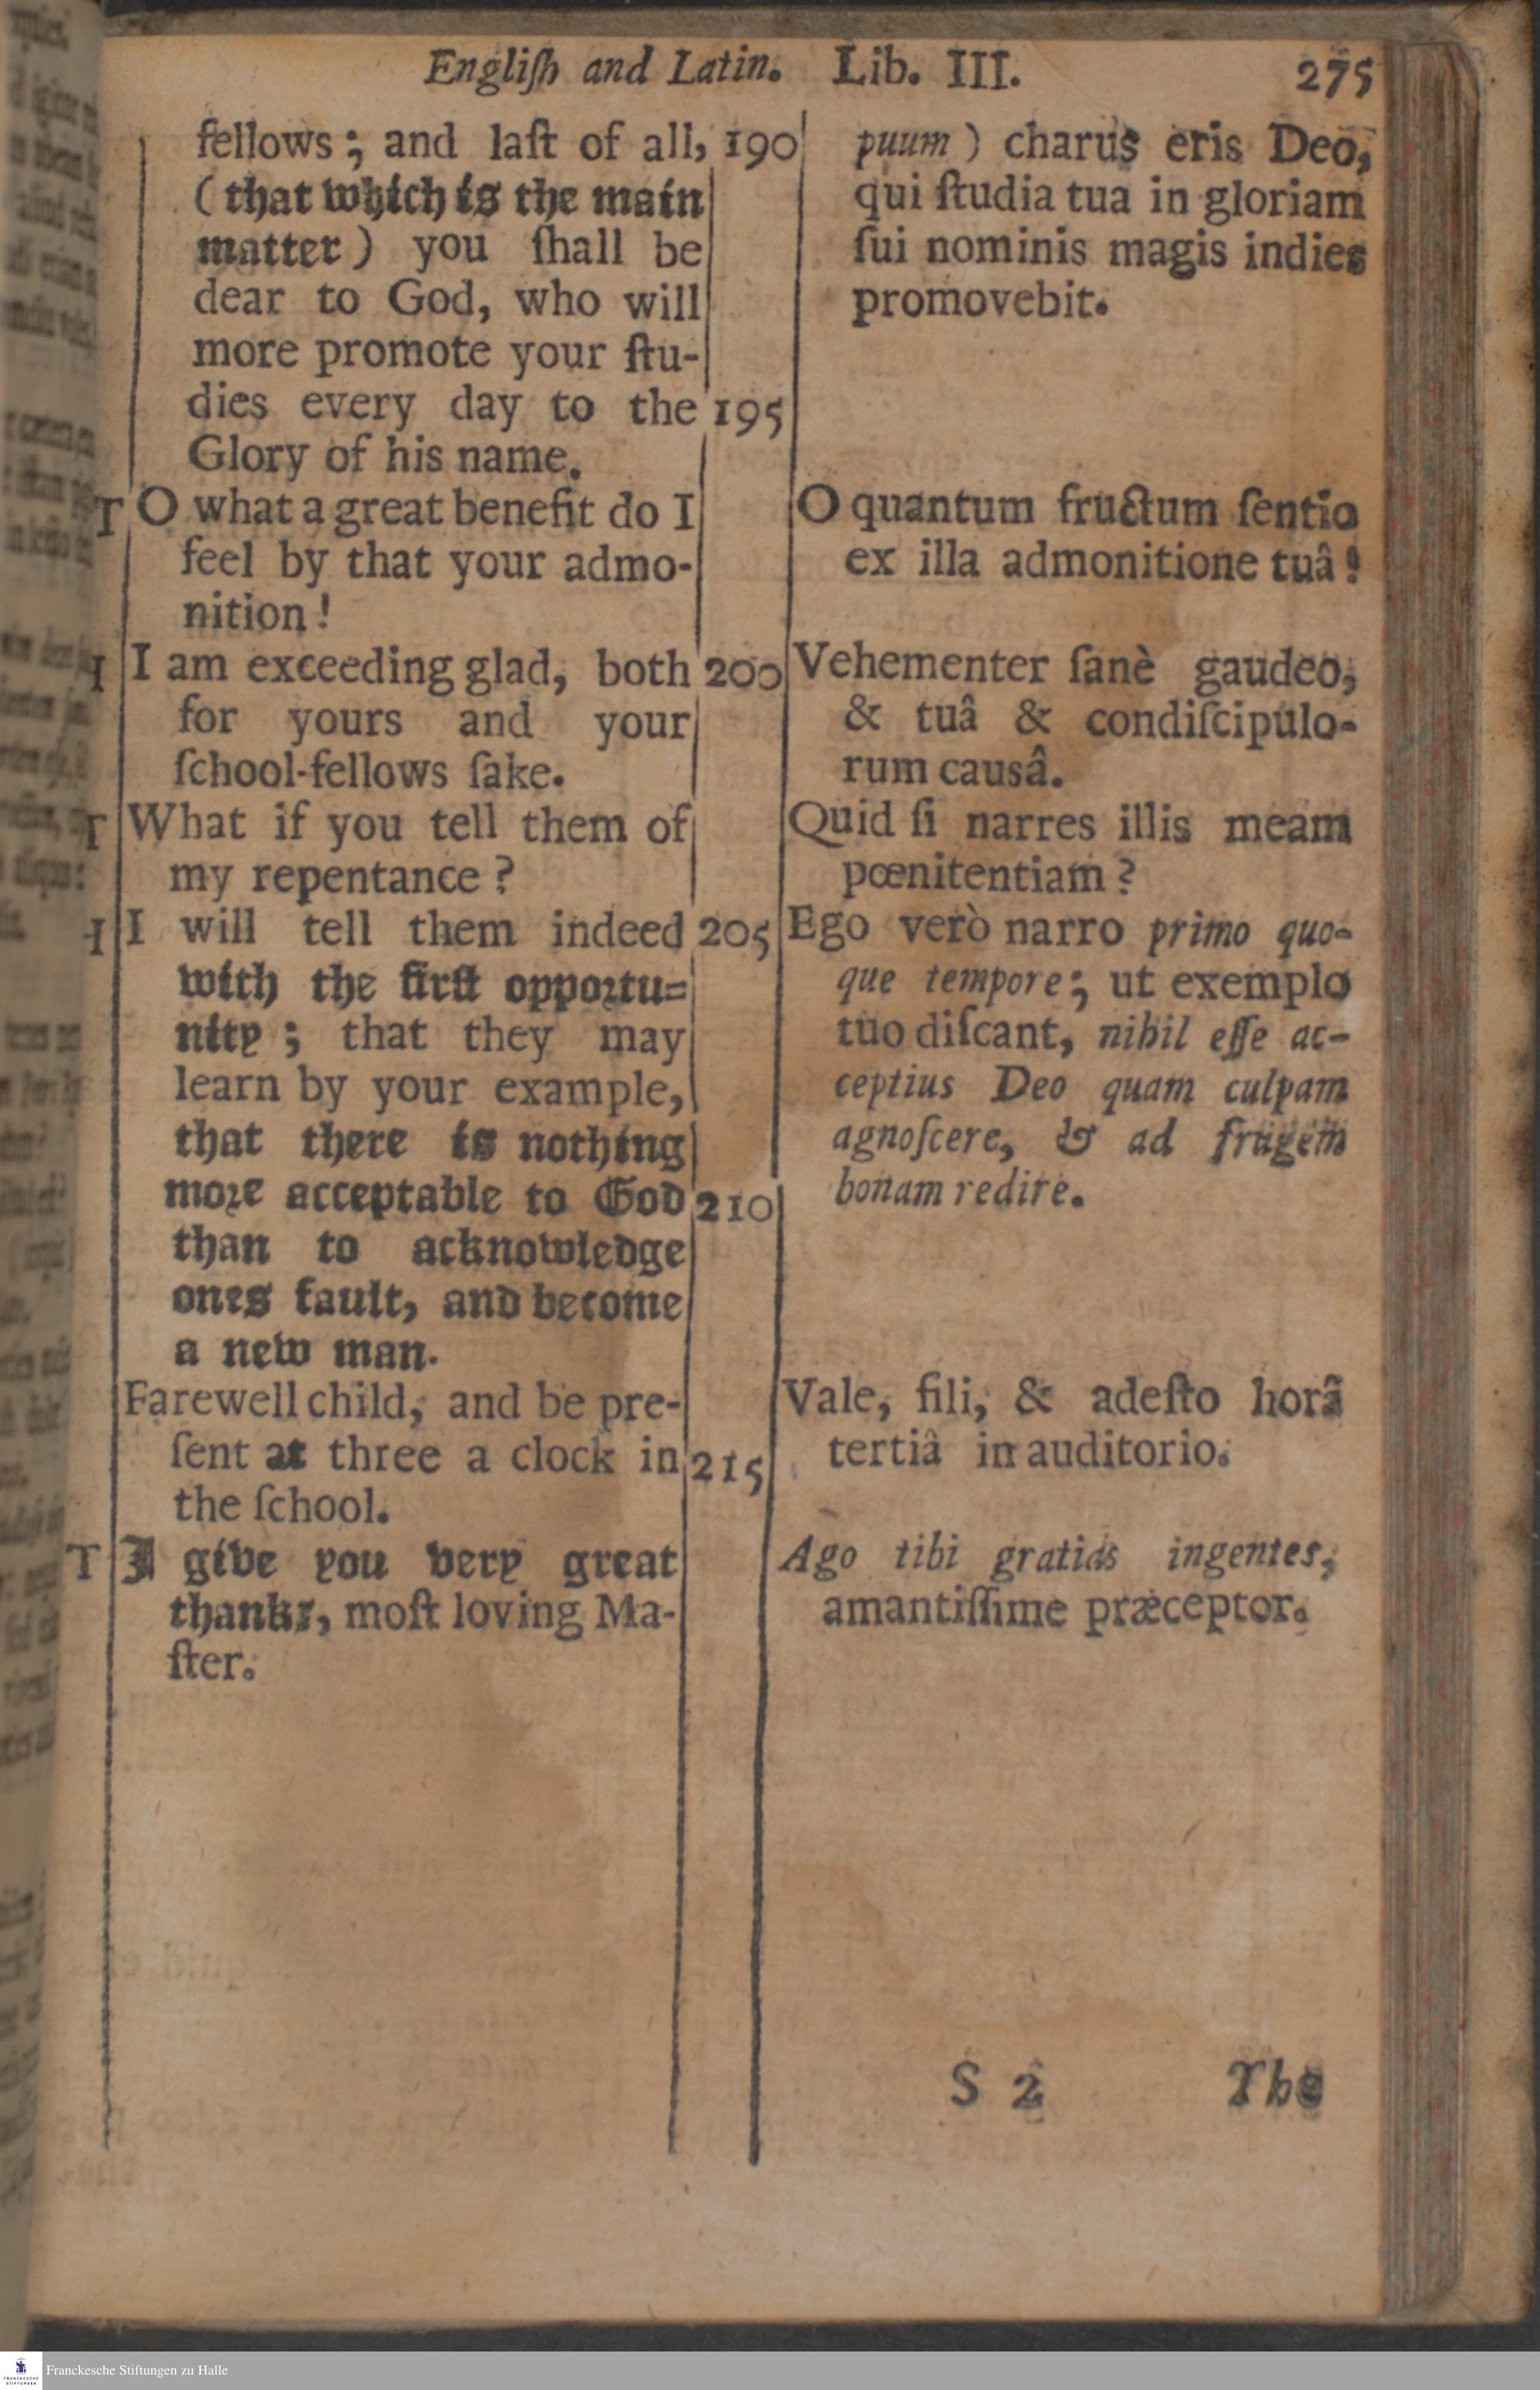 Engliſh and Latin. Lib. III. 275
fellows; and laſt of all, 190
(that which is the main
matter) you ſhall be
dear to God, who will
more promote your ſtu-
dies every day to the 195
Glory of his name.
T O what a great benefit do I
feel by that your admo-
nition!
I am exceeding glad, both 200
for yours and your
ſchool-fellows ſake.
T What if you tell them of
my repentance?
I will tell them indeed 205
with the firſt opportu=
nity; that they may
learn by your example,
that there is nothing
more acceptable to God 210
than to acknowledge
ones fault, and become
a new man.
Farewell child, and be pre-
ſent at three a clock in 215
the ſchool.
T I give you very great
thanks, moſt loving Ma-
ſter.
puum) charus eris Deo,
qui ſtudia tua in gloriam
ſui nominis magis indies
promovebit.
O quantum fructum ſentio
ex illa admonitione tuâ!
Vehementer ſanè gaudeo,
& tuâ & condiſcipulo-
rum causâ.
Quid ſi narres illis meam
pœnitentiam?
Ego verò narro primo quo-
que tempore; ut exemplo
tuo diſcant, nihil eſſe ac-
ceptius Deo quam culpam
agnoſcere, & ad frugem
bonam redire.
Vale, fili, & adeſto horâ
tertiâ in auditorio.
Ago tibi gratias ingentes,
amantiſſime præceptor.
S 2 The
Franckesche Stiftungen zu Halle